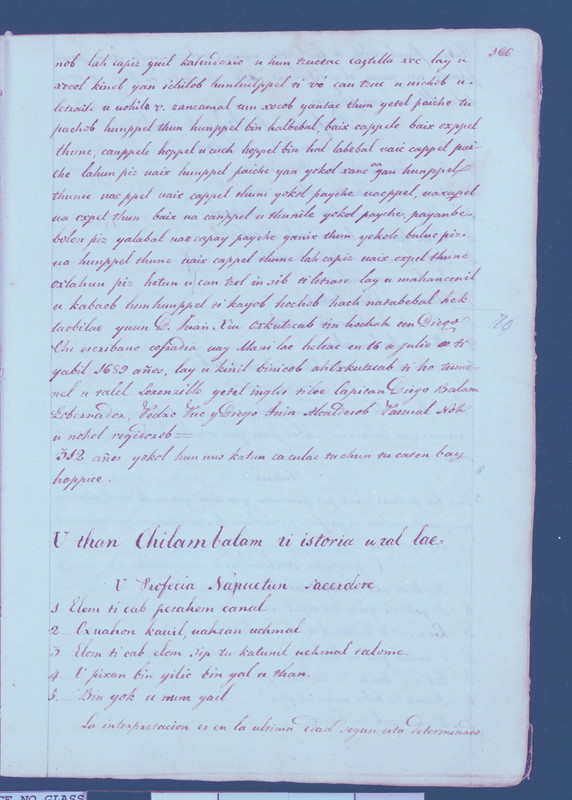 166
nob lah capiz quil kalendario u hun tzucac castilla xoc lay u
xocol kinob yan ichilob hunhunppel ti vo can tzuc u uichob u
letraile u uohilo v. zanzamal tun xocob yanlac thun yetel paiche tu
pachob hunppel thun hunppel bin halbebal, baix cappele baix oxppel
thune, canppele hoppel u cuch hoppel bin hal labebal uaic cappel pai-
che lahun piz uaix hunppel paiche yan yokol xane ua yan hunppel
thunie uac ppel uaix cappel thuni yokol payche uacppel, uaxappel
ua oxpel thun baix ua canppel u thunile yokol payche, payanbe
bolon piz yalabal uao capay payche yanix thun yokole buluc piz.
ua hunppel thune uaix cappel thune lah capiz uaix oxpel thune
oxlahun piz hetun u can tzol
u kabaob hunhunppel ti kayob hochob hach natabebal hek
laobilae yuun D. Juan Xiu Oxkutzcab tin hochah con Diego
Chi escribano cofradia uay Mani lac helae en 16 a Julio ti
yabil 1689 años, lay u kinil binicob ahoxkutzcab ti ho
nel u talel Lorenzillo yetel ingles tiloe Capitan Diego Balam
Gobernador, Pedro Puc y Diego Tuin Alcaldesob Pascual Noh
u nohol regidoreb=
312 años yokol hun uuo katun ca culac tu chun tu caten bay
hoppice.
70
U than Chilambalam ti istoria uzal lae.
U Profecia Napuctun Sacerdote
1 Elom ti cab petahom canal
2 Oxuahom kauil, uahzan uchmal
3 Elom ti cab elom tip tu katunil uchmal talome
4 U pixan bin yilic bin yal u than.
5. Bin yok u num yail
La interpretacion es en la ultima edad segun esta determinado.